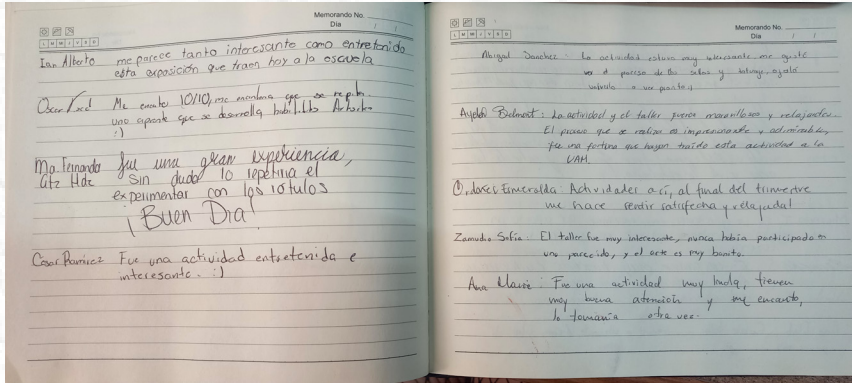 Memorando No.
Día / /
L M M J V S D
Ian Alberto me parece tanto interesante como entretenido
esta exposición que traen hoy a la escuela
Oscar Me encanto 10/10, me encantaria que se repita
uno aprende que se desarrolla habilidades
:)
Ma Fernanda fue una gran experiencia,
Gtz Hdz sin duda lo repetiria el
experimentar con los rótulos
¡Buen Dia!
Cesar Ramirez Fue una actividad entretenida e
interesante. :)
Memorando No.
Día / /
L M M J V S D
Abigail Sanchez: La actividad estuvo muy interesante me gustó
ver el proceso de los y tatuaje, ojalá
volverlo a ver pronto :)
Belmont: La actividad y el taller fueron maravillosos y relajantes.
El proceso que se realiza es impresionante y admirable,
fue una fortuna que hayan traído esta actividad a la
UAM.
Ordoñez Esmeralda: Actividades así, al final del trimestre
me hace sentir satisfecha y relajada!
Zamudio Sofía: El taller fue muy interesante, nunca había participado en
uno parecido, y el arte es muy bonito.
Ana Maria: Fue una actividad muy linda, tienen
muy buena atención y me encanto,
lo tomaría otra vez.